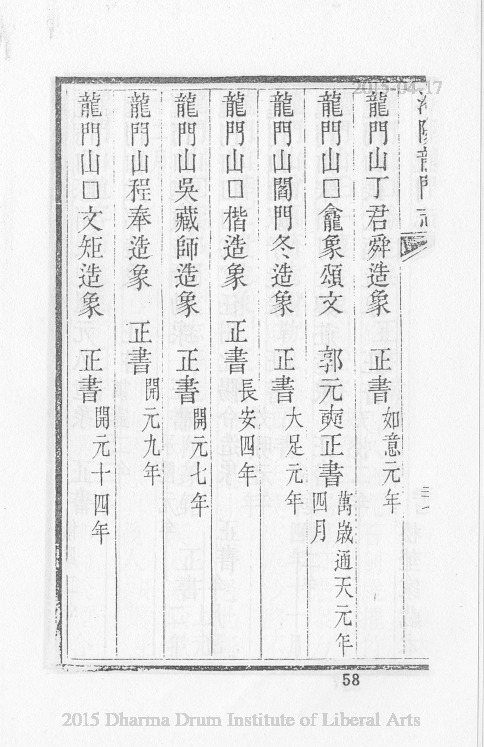 2015-04-17
洛陽龍門志
龍門山丁君舜造象 正書 如意元年
龍門山□龕象頌文 郭元奭正書 萬歲通天元年四月
龍門山閻門冬造象 正書 大足元年
龍門山□楷造象 正書 長安四年
龍門山吳藏師造象 正書 開元七年
龍門山程奉造象 正書 開元九年
龍門山□文矩造象 正書 開元十四年
58
2015 Dharma Drum Institute of Liberal Arts